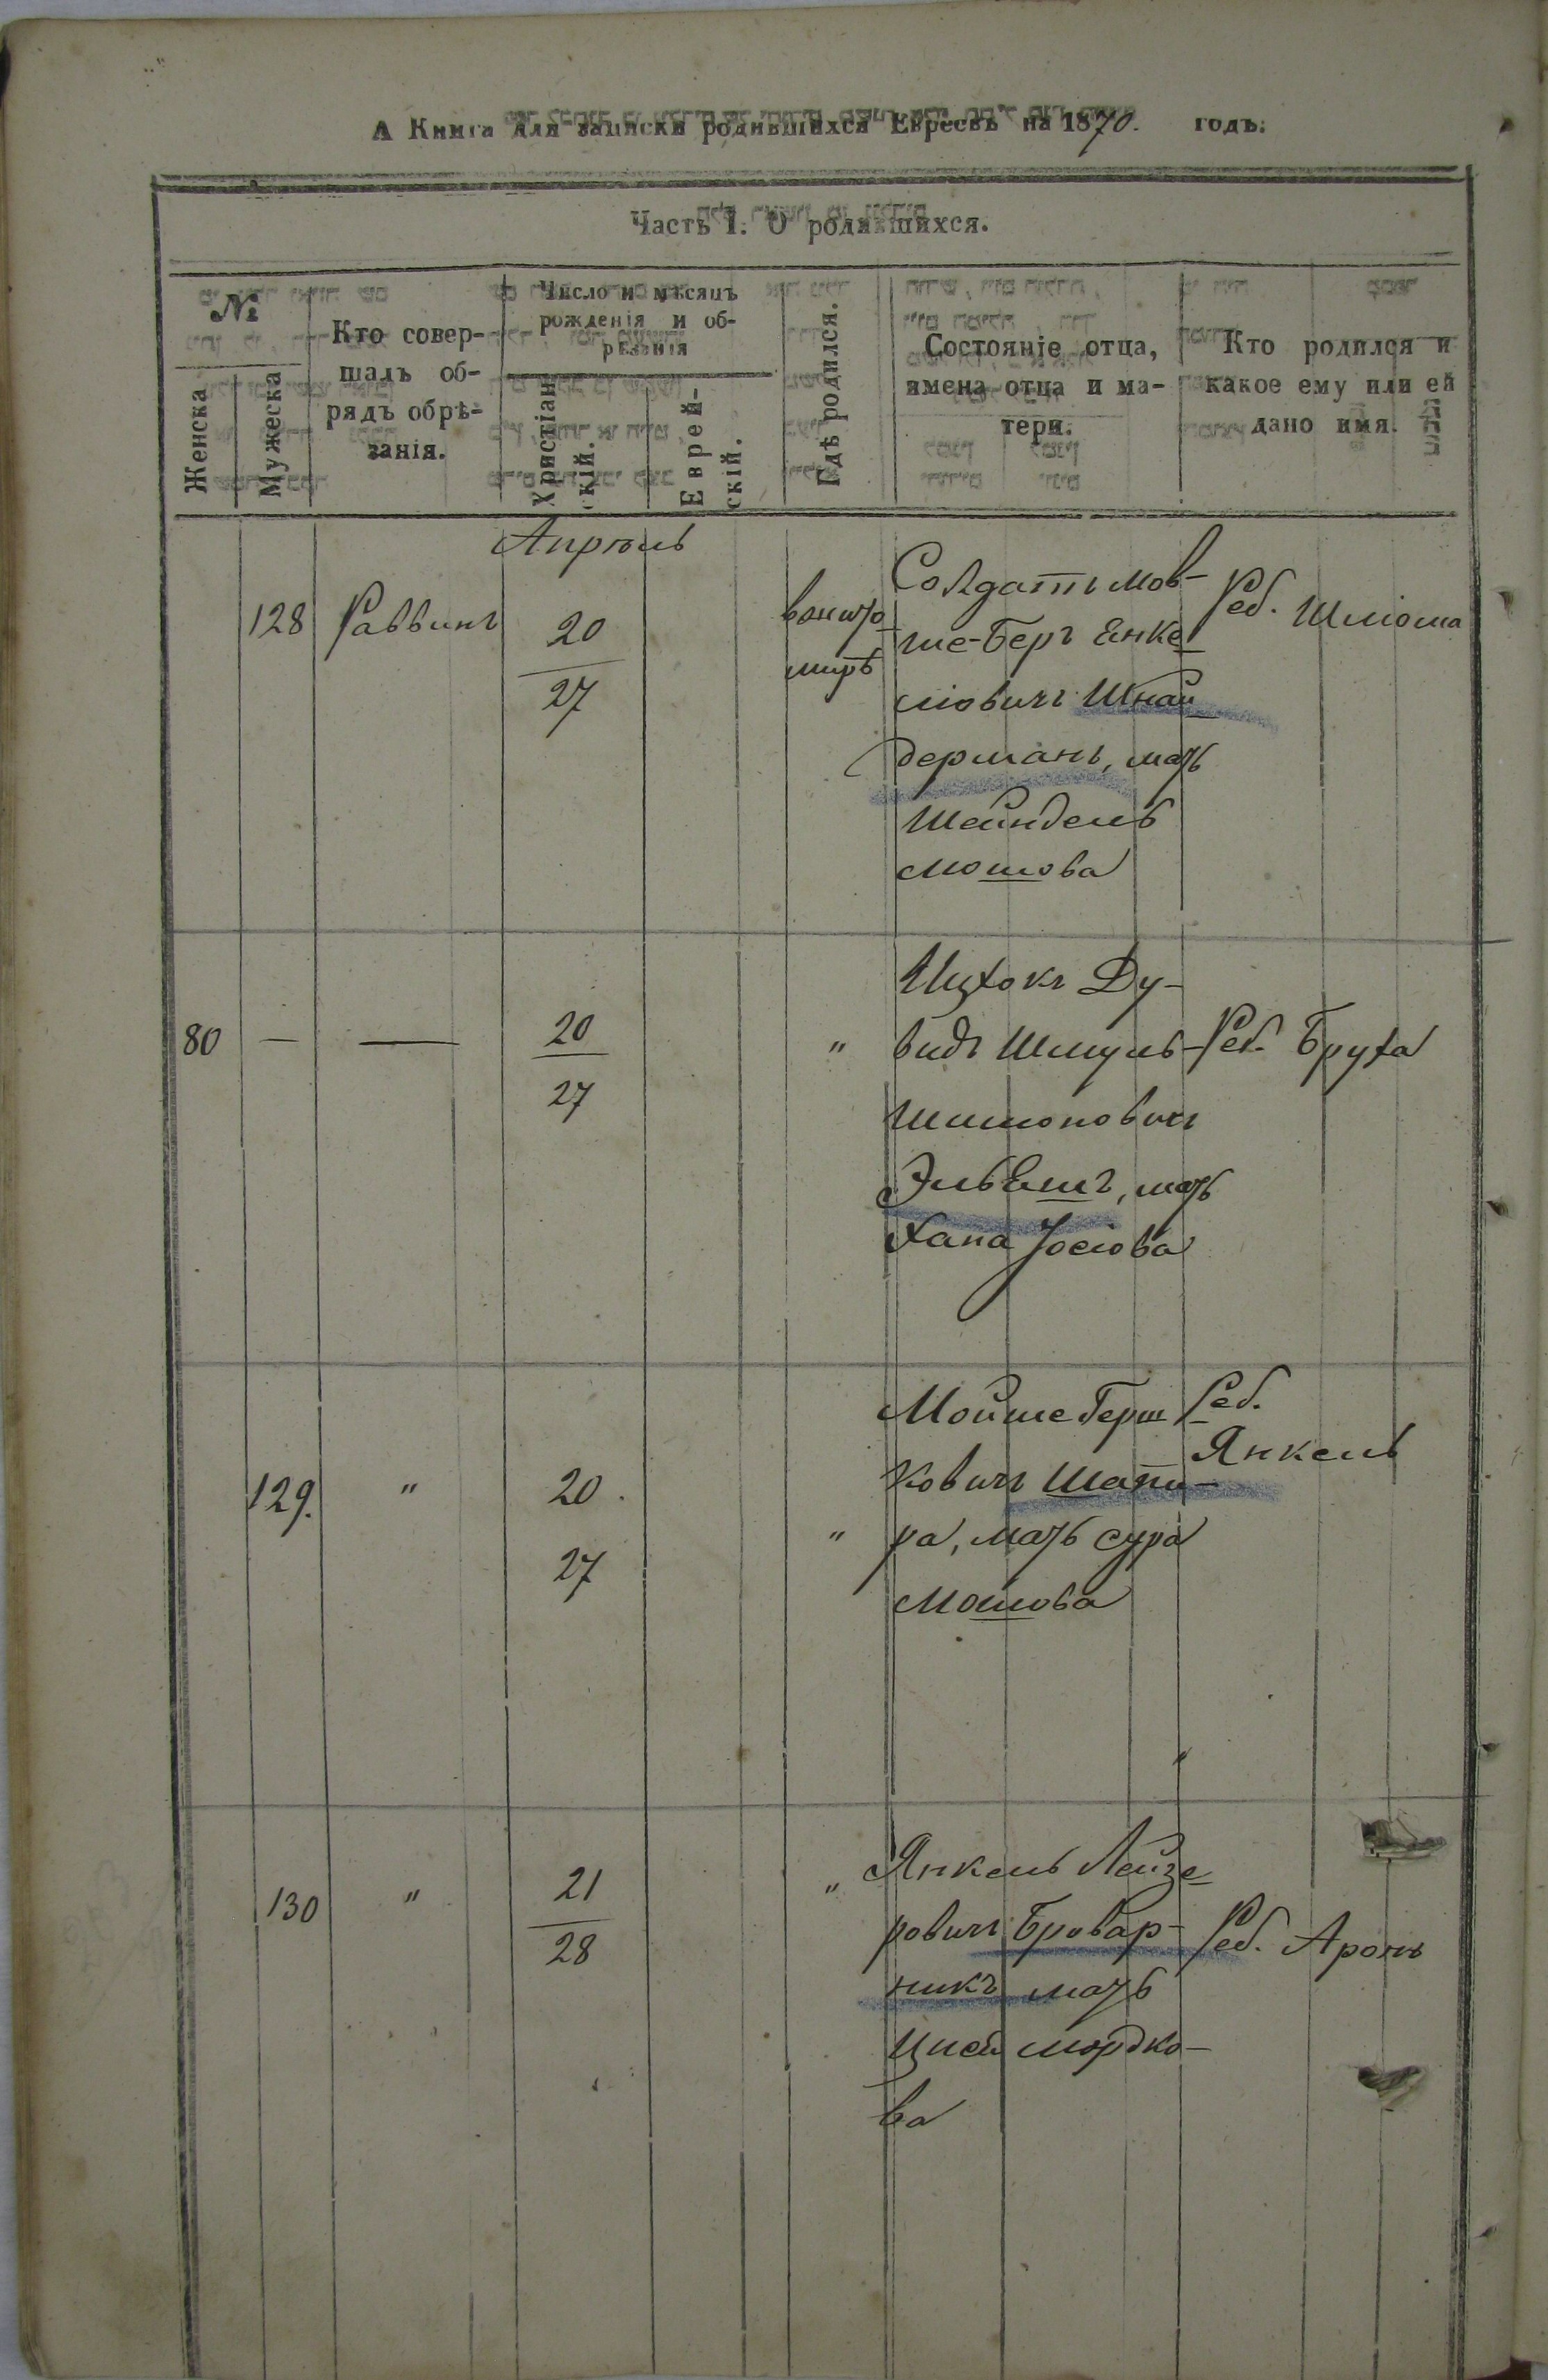 А Книга для записки родившихся Евреевъ на 1870. годъ.
Часть I. О родившихся.
№
Женска
Мужеска
Кто совер-
шалъ об-
рядъ обрѣ-
занія.
Число и мѣсяцъ
рожденія и об-
рѣзанія
Христіан
скій.
Еврей-
скій.
Гдѣ родился.
Состояніе отца,
имена отца и ма-
тери.
Кто родился и
какое ему или ей
дано имя.
Апрѣль
128 Раввинъ 20
27
в Жито
мирѣ
Солдатъ Мов-
ше-Беръ Енке
лiовичъ Шнай
дерманъ, мать
Шейндель
Мошова
Реб. Шліома
80 — — 20
27
"
Ицхокъ Ду-
видъ Шмуль-
Шимоновичъ
Эльбемъ, мать
Хана Іосіова
Реб. Бруха
129. " 20.
27
"
Мойше Герш
ковичъ Шапи-
ра, мать Сура
Мошова
Реб.
Янкель
130 " 21
28
"
Янкель Лейзе
ровичъ Бровар-
никъ мать
Цисй Мордко-
ва
Реб. Аронъ